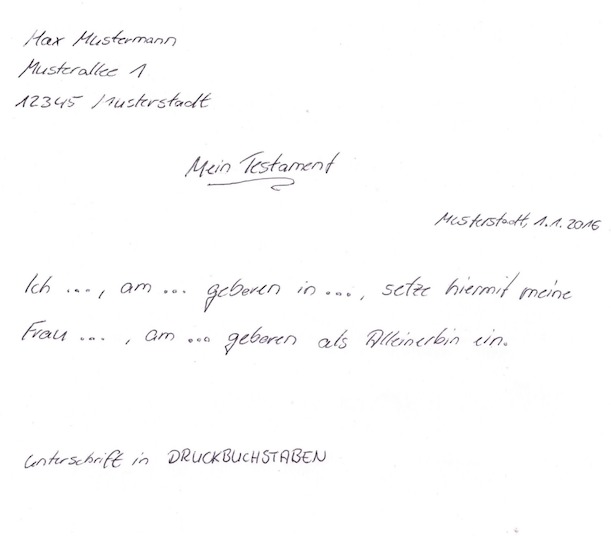 Max Mustermann
Musterallee 1
12345 Musterstadt
Mein Testament
Musterstadt, 1.1.2016
Ich ..., am ... geboren in ..., setze hiermit meine
Frau ... , am ... geboren als Alleinerbin ein.
Unterschrift in DRUCKBUCHSTABEN